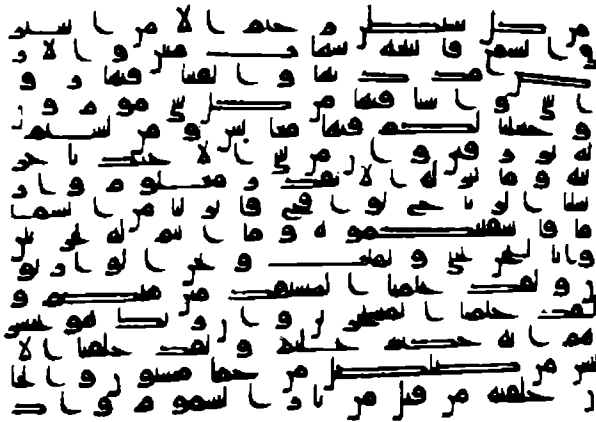 من كل شيطن رجيم الا من استر
ق السمع فاتبعه شهاب مبين والار
ض مددنها والقينا فيها رو
اسي وانبتنا فيها من كل شي موزون و
جعلنا لكم فيها معيش ومن لستم
له برزقين وان من شي الا عندنا خز
ئنه وما ننزله الا بقدر معلوم وار
سلنا الريح لوقح فانزلنا من السما
ما فاسقينكموه وما انتم له بخزنين
وانا لنحن نحي ونميت ونحن الورثو
ن ولقد علمنا المستقدمين منكم و
لقد علمنا المستخرين وان ربك هو يحشر
هم انه حكيم عليم ولقد خلقنا الا
نسن من صلصل من حما مسنون والجا
ن خلقنه من قبل من نار السموم واذ